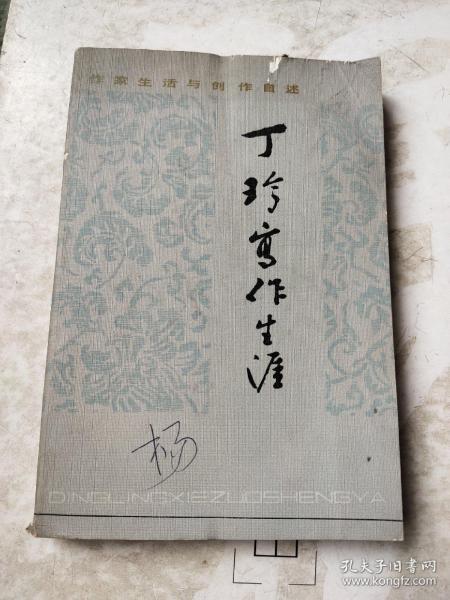 作家生活与创作自述
丁玲写作生涯
杨
DINGLINGXIEZUOSHENGYA
孔夫子旧书网
www.kongfz.com